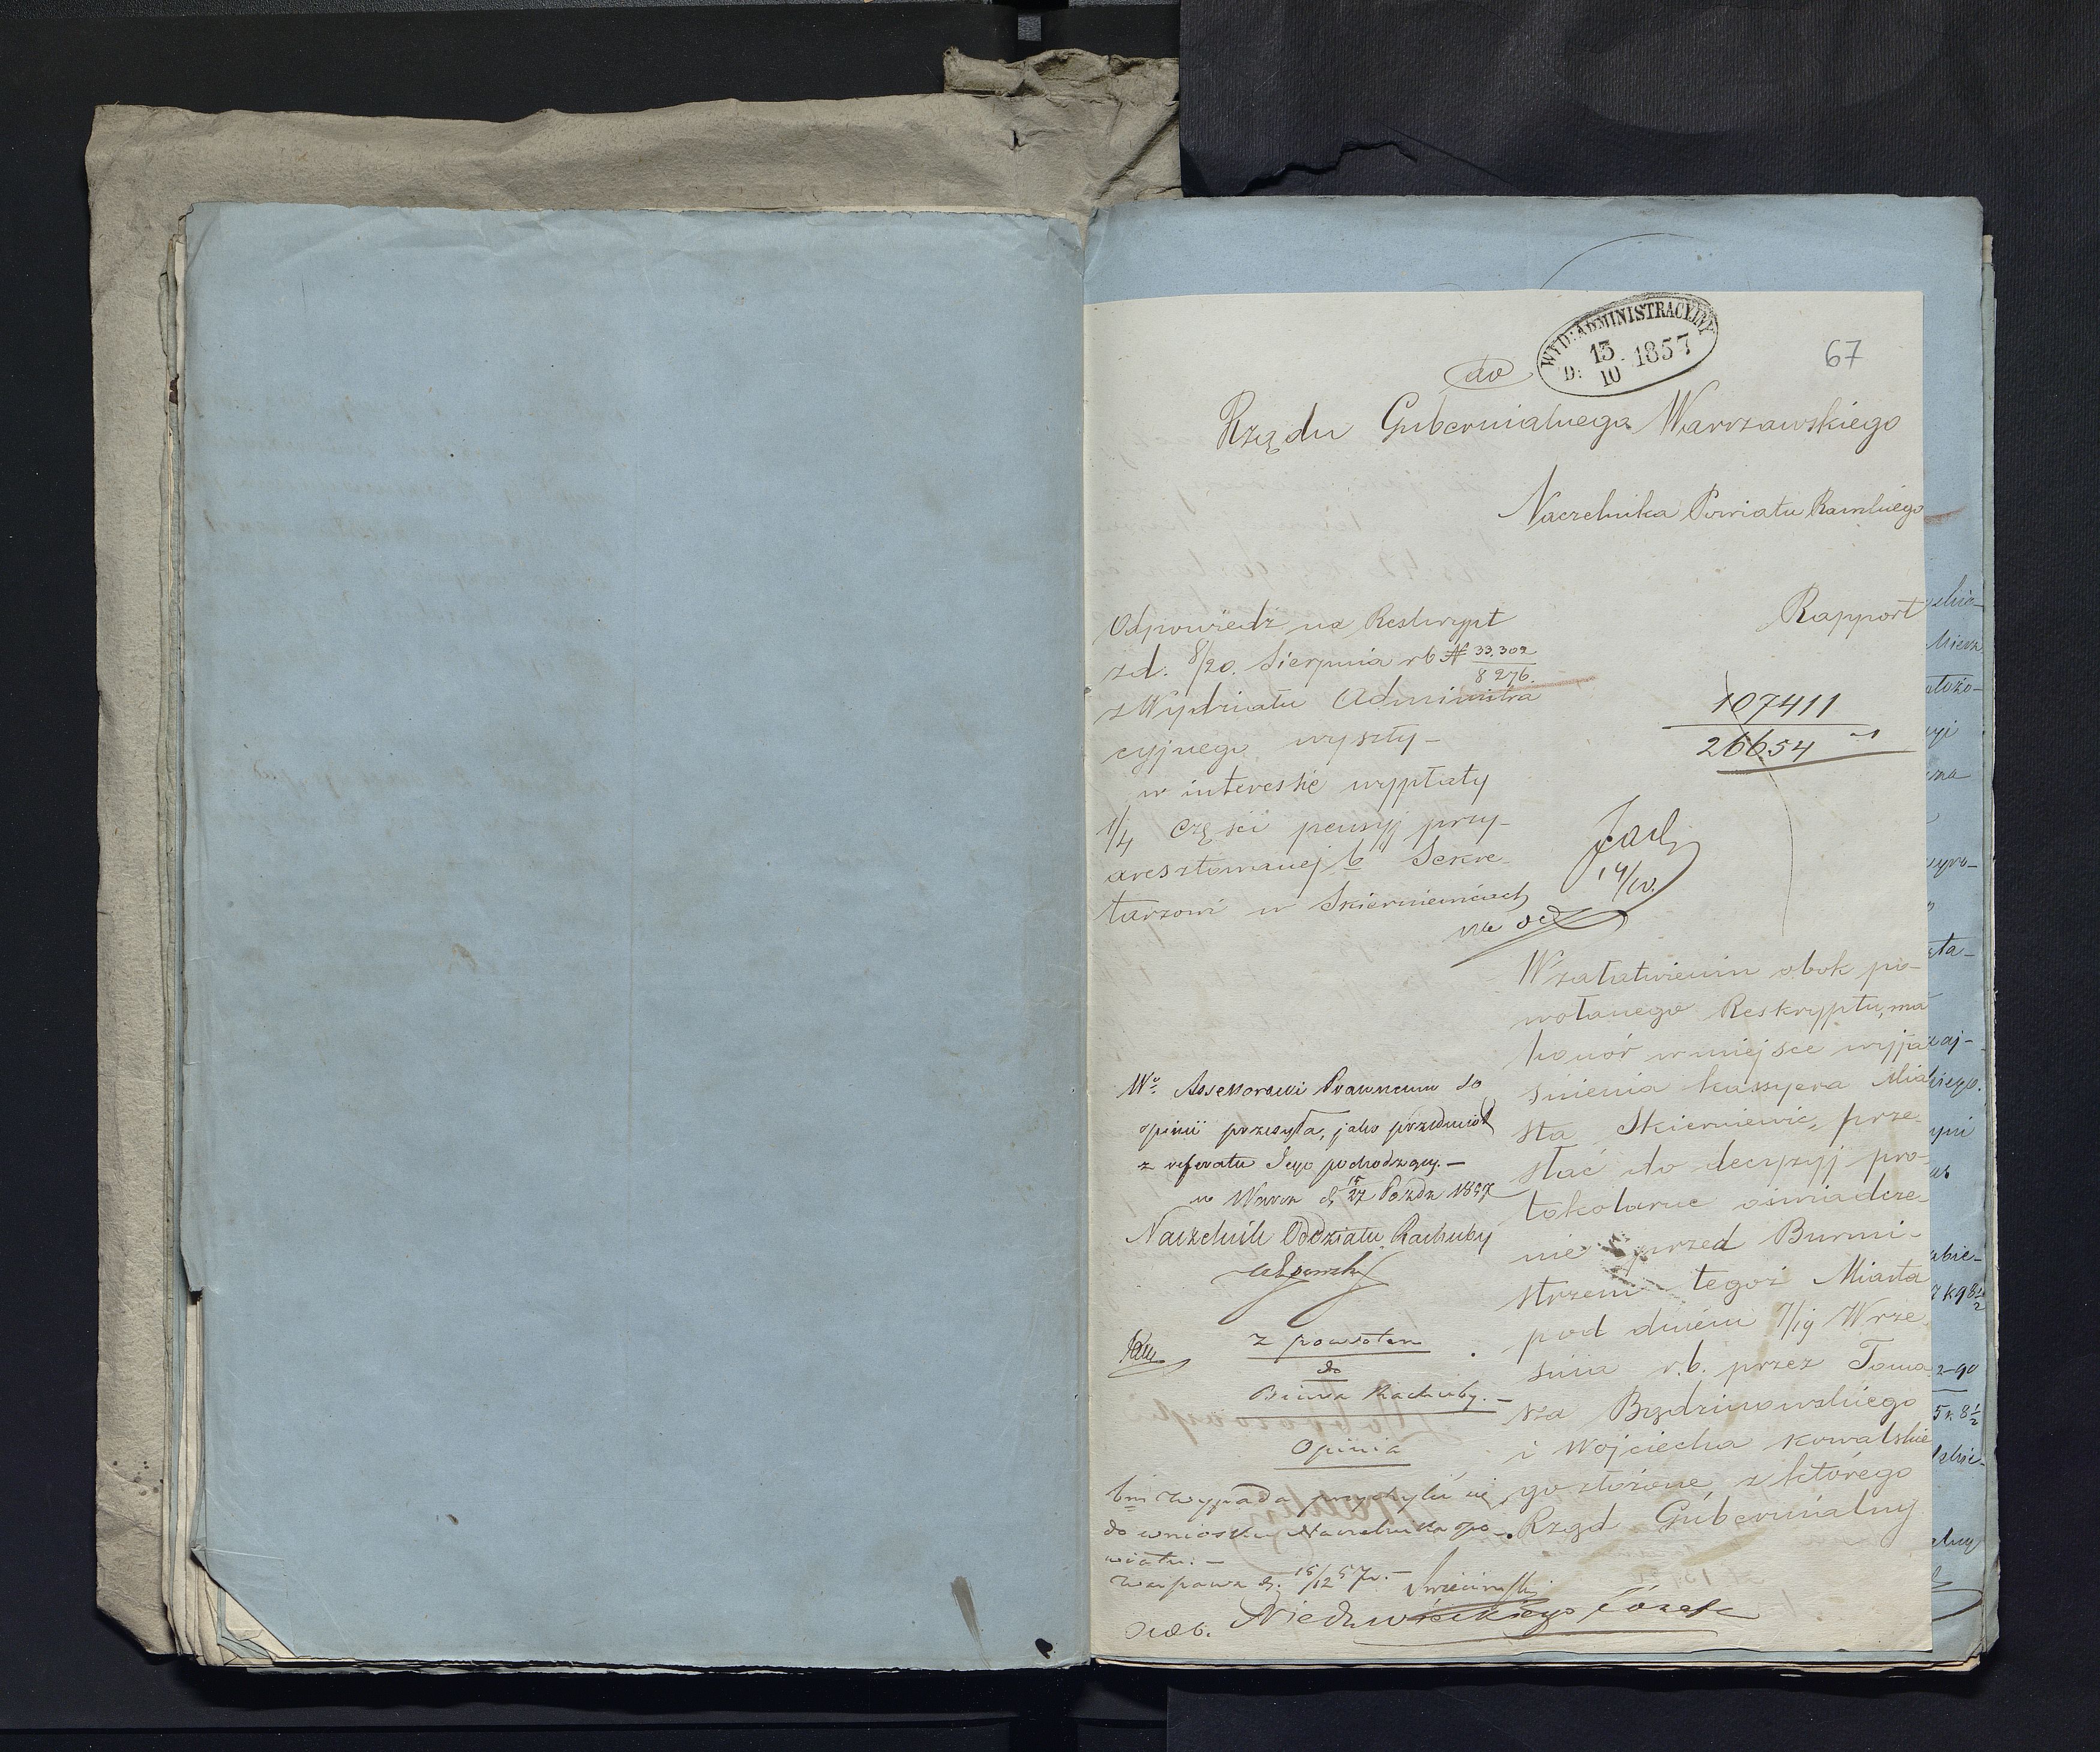 WYD: ADMINISTRACYJNY
D: 13/10 1857
67
do
Rządu Gubernialnego Warszawskiego
Naczelnika Powiatu Rawskiego
Rapport
Odpowiedź na Reskrypt
z d. 8/20. Sierpnia rb № 33,302/8276.
z Wydziału Administra
cyjnego wyszły-
w interessie wypłaty
1/4 części pensyj przy-
aresztowanej b Sekre-
tarzowi w Skierniewicach
107411
26654
14/10.
W załatwieniu obok po-
wołanego Reskryptu, ma
honór w miejsce wyja
śnienia kassyera Mia
sta Skierniewic, prze-
słać do decyzyj pro-
tokolarne oświadcze-
nie przed Burmi-
strzem tegoż Miasta
pod dniem 7/19 Wrze
śnia r.b. przez Toma
sza Będzinowskiego
i Wojciecha Kowalskie
go złożone, z którego
Rząd Gubernialny
Wu Assessorowi Prawnemu do
opinii przesyła, jako przedmiot
z referatu Jego pochodzący.-
w Warsz d 15/27 Paźdz 1857
Naczelnik Oddziału Rachuby
Z powrotem
do
Biura Rachuby.-
Opinia
wypada przychylić się
do wniosku Naczelnika Po-
wiatu.-
Warszawa d. 16/12 57 r.-
Niedzwieckiego Józefa